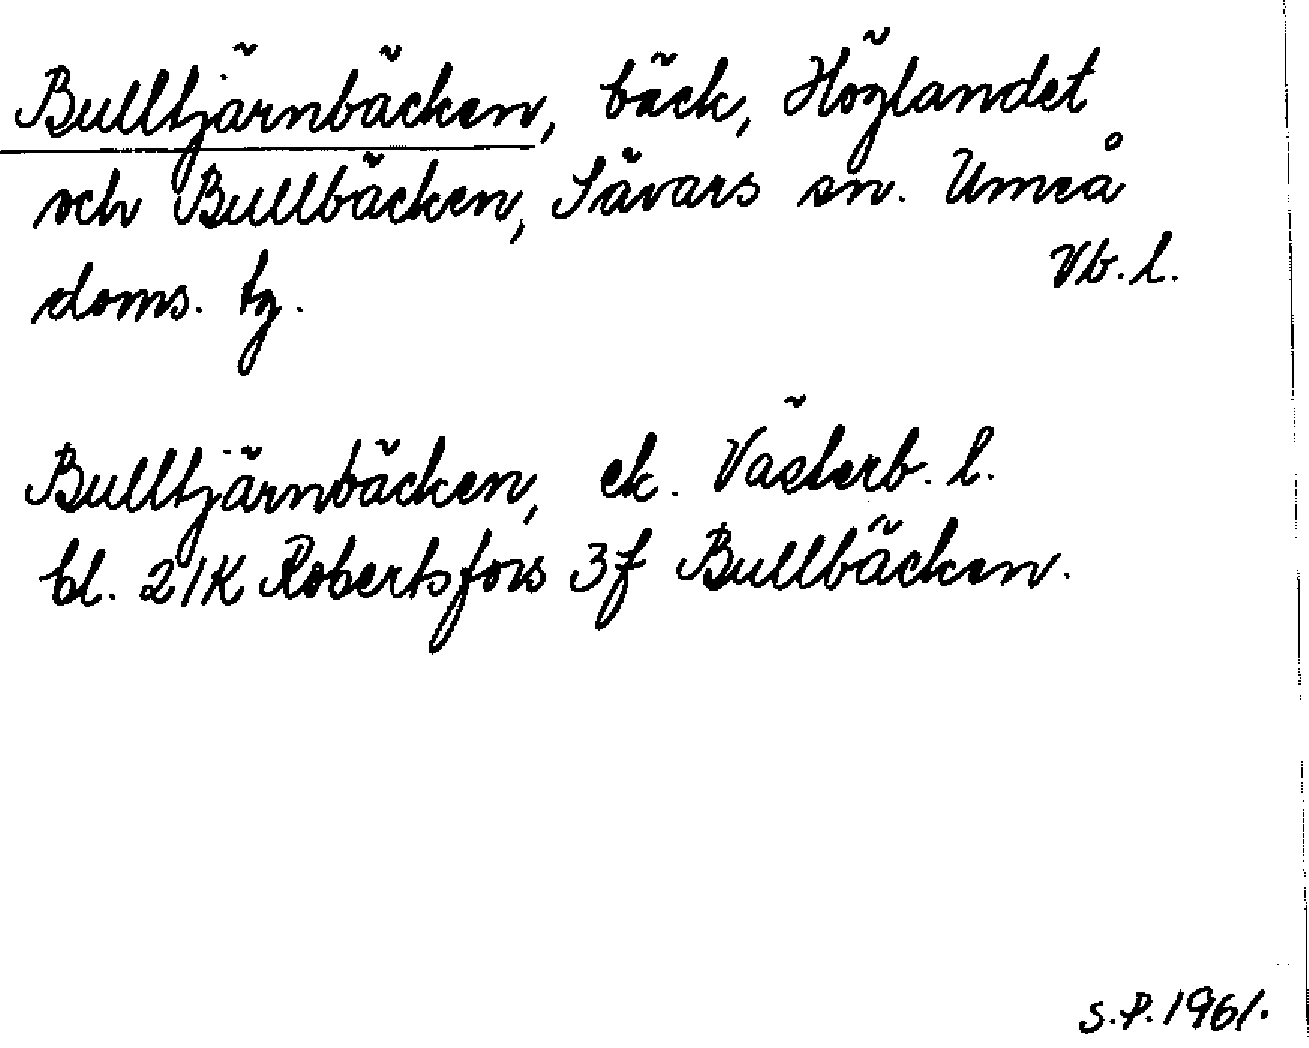 Bulltjärnbäcken, bäck, Höglandet
och Bullbäcken, Sävars sn. Umeå
doms. tg. Vb. l.
Bulltjärnbäcken, ek. Västerb. l.
bl. 21K Robertsfors 3f Bullbäcken.
S.P. 1961.